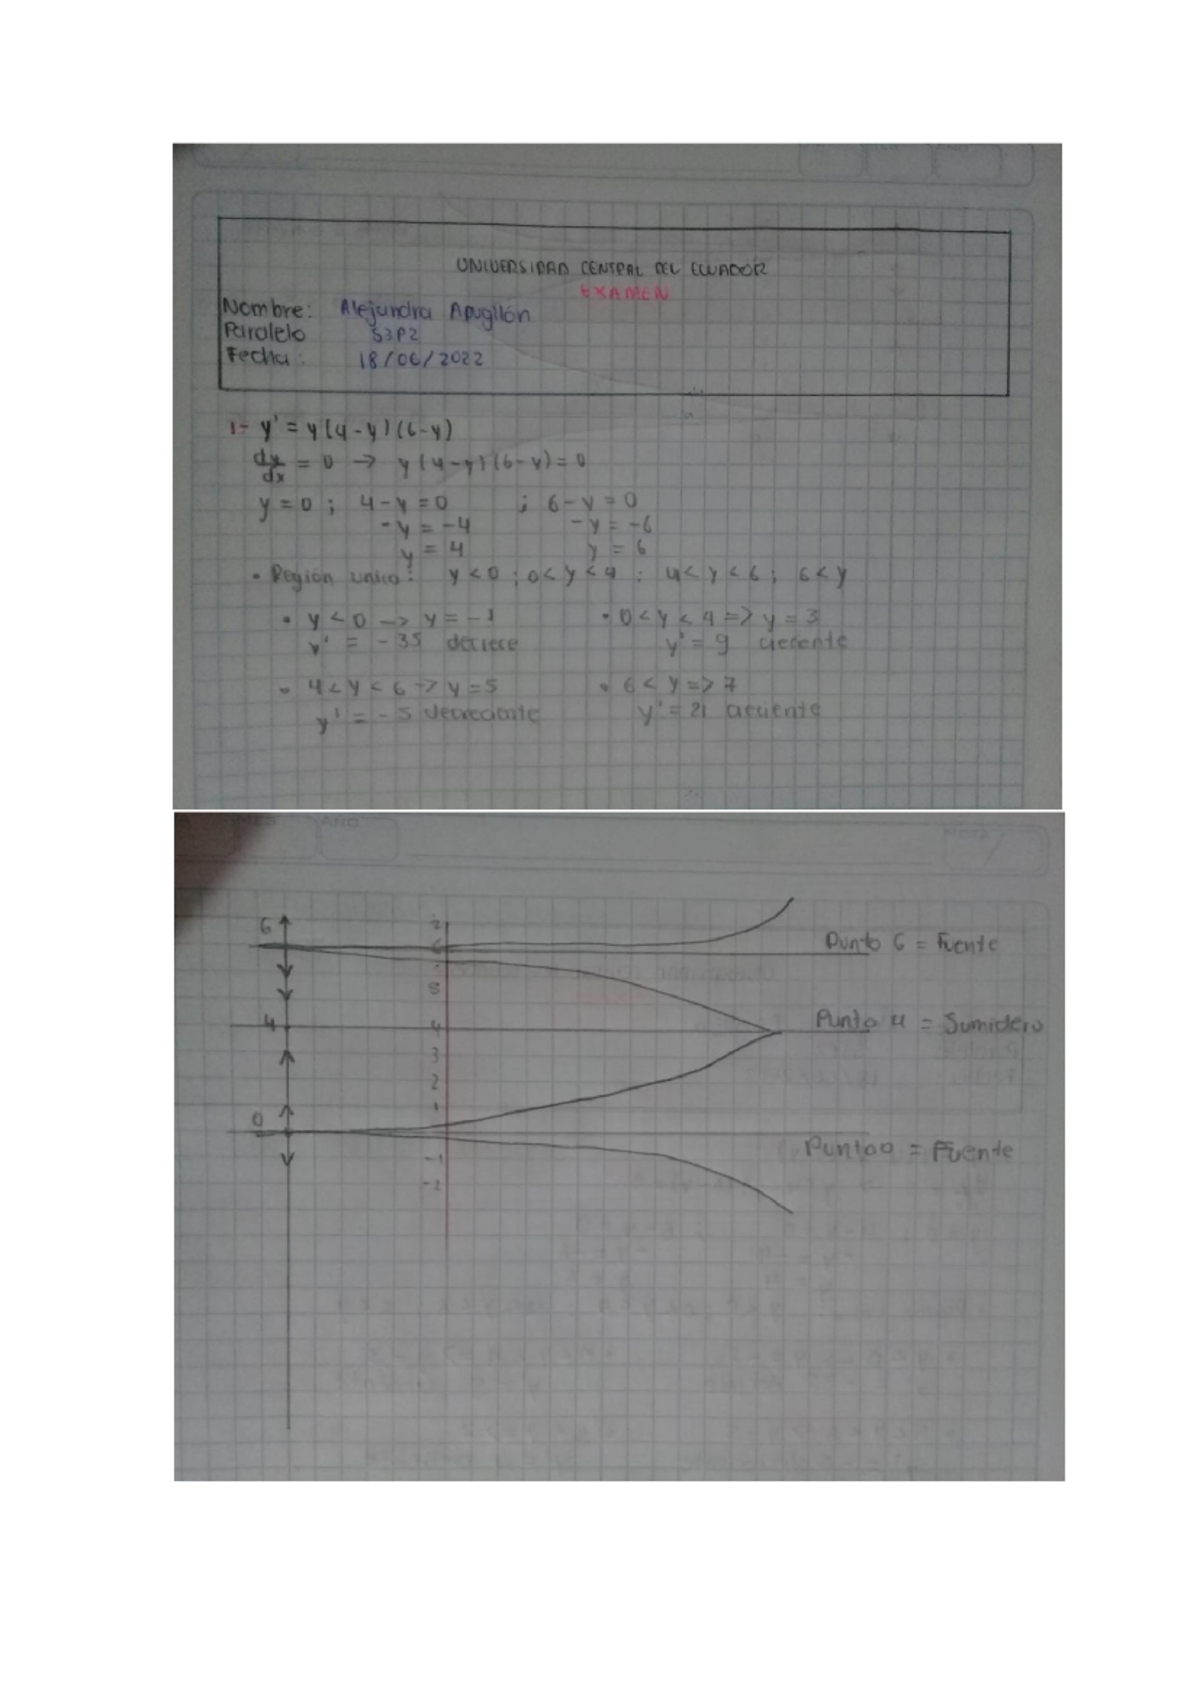 UNIVERSIDAD CENTRAL DEL ECUADOR
EXAMEN
Nombre: Alejandra Apugllón
Paralelo S3P2
Fecha: 18/06/2022
1- y' = y(4-y)(6-y)
dy/dx = 0 → y(4-y)(6-y)=0
y=0; 4-y=0 ; 6-y=0
-y = -4 -y = -6
y = 4 y = 6
• Región unico: y<0; 0<y<4; 4<y<6; 6<y
• y<0 → y=-1 • 0<y<4 => y=3
y' = -35 decrece y' = 9 creciente
• 4<y<6 → y=5 • 6<y => 7
y' = -5 decreciente y' = 21 creciente
6
6
Punto 6 = Fuente
5
4
4
Punto 4 = Sumidero
3
2
1
0
Punto 0 = Fuente
-1
-2